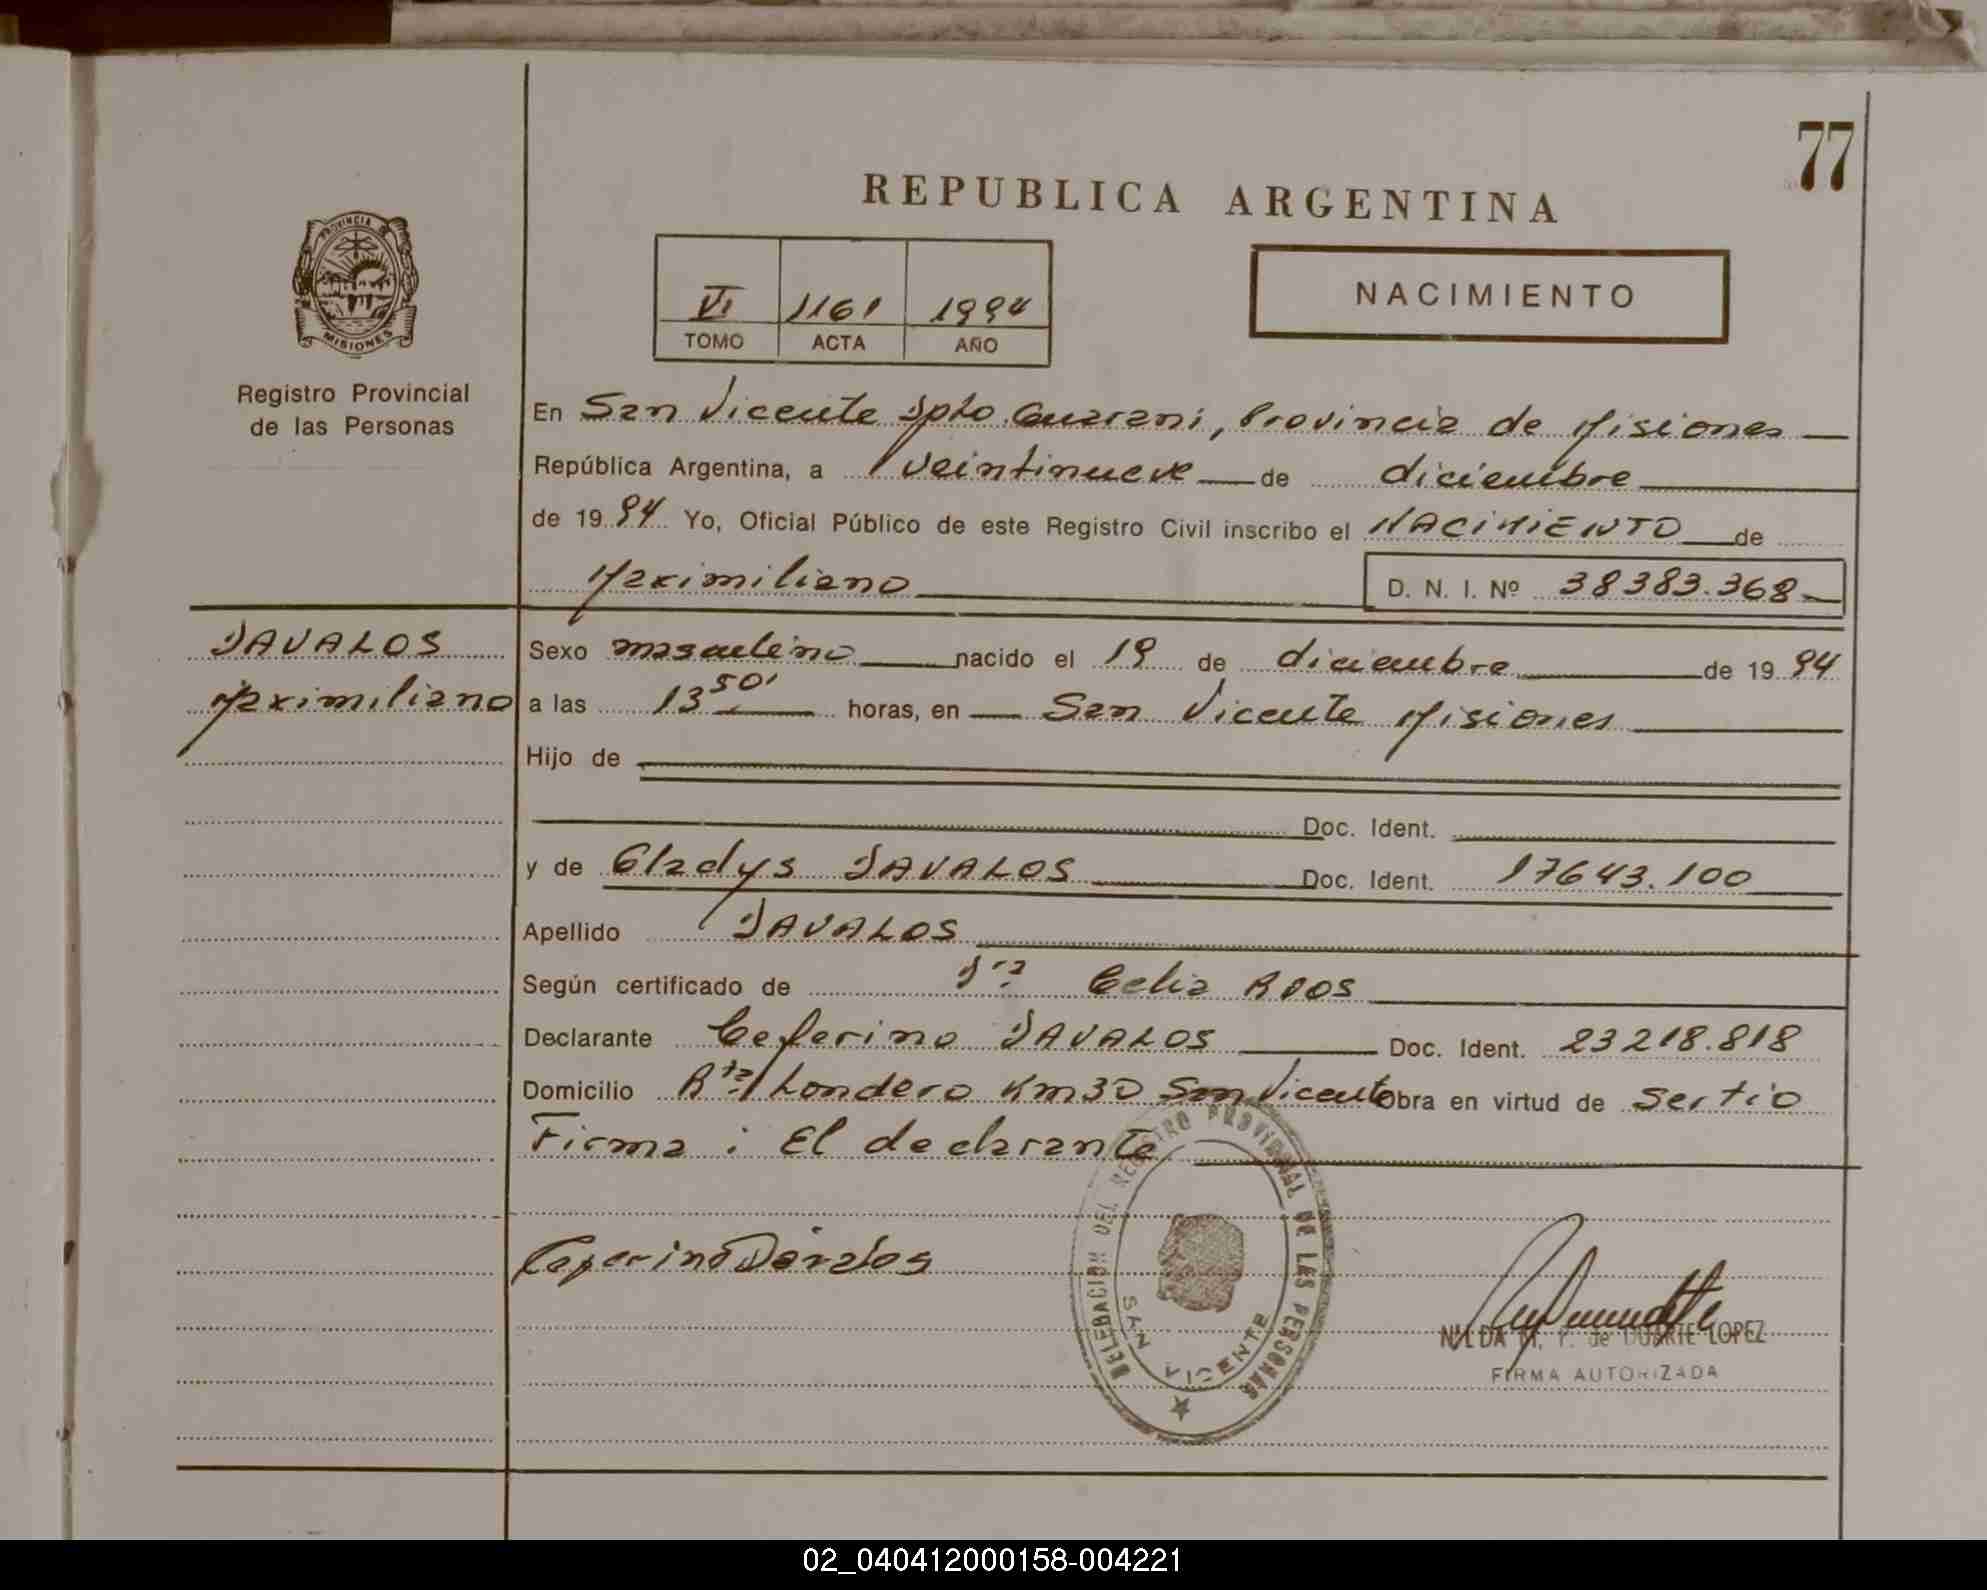 77
REPUBLICA ARGENTINA
PROVINCIA DE
MISIONES
NACIMIENTO
VI 1161 1994
TOMO ACTA AÑO
Registro Provincial
de las Personas
En San Vicente Dpto. Guarani, Provincia de Misiones
República Argentina, a veintinueve de diciembre
de 1994 Yo, Oficial Público de este Registro Civil inscribo el NACIMIENTO de
Maximiliano D. N. I. Nº 38383.368
DAVALOS
Maximiliano
Sexo masculino nacido el 19 de diciembre de 1994
a las 13 50' horas, en San Vicente Misiones
Hijo de
Doc. Ident.
y de Gladys DAVALOS Doc. Ident. 17643.100
Apellido DAVALOS
Según certificado de Dra Celia ROOS
Declarante Ceferino DAVALOS Doc. Ident. 23218.818
Domicilio Rta Londero Km30 San Vicente Obra en virtud de
Firma: El declarante
Ceferino Dávalos
DELEGACION DEL REGISTRO PROVINCIAL DE LAS PERSONAS
SAN VICENTE
NILDA M. P. de DUARTE LOPEZ
FIRMA AUTORIZADA
02_040412000158-004221